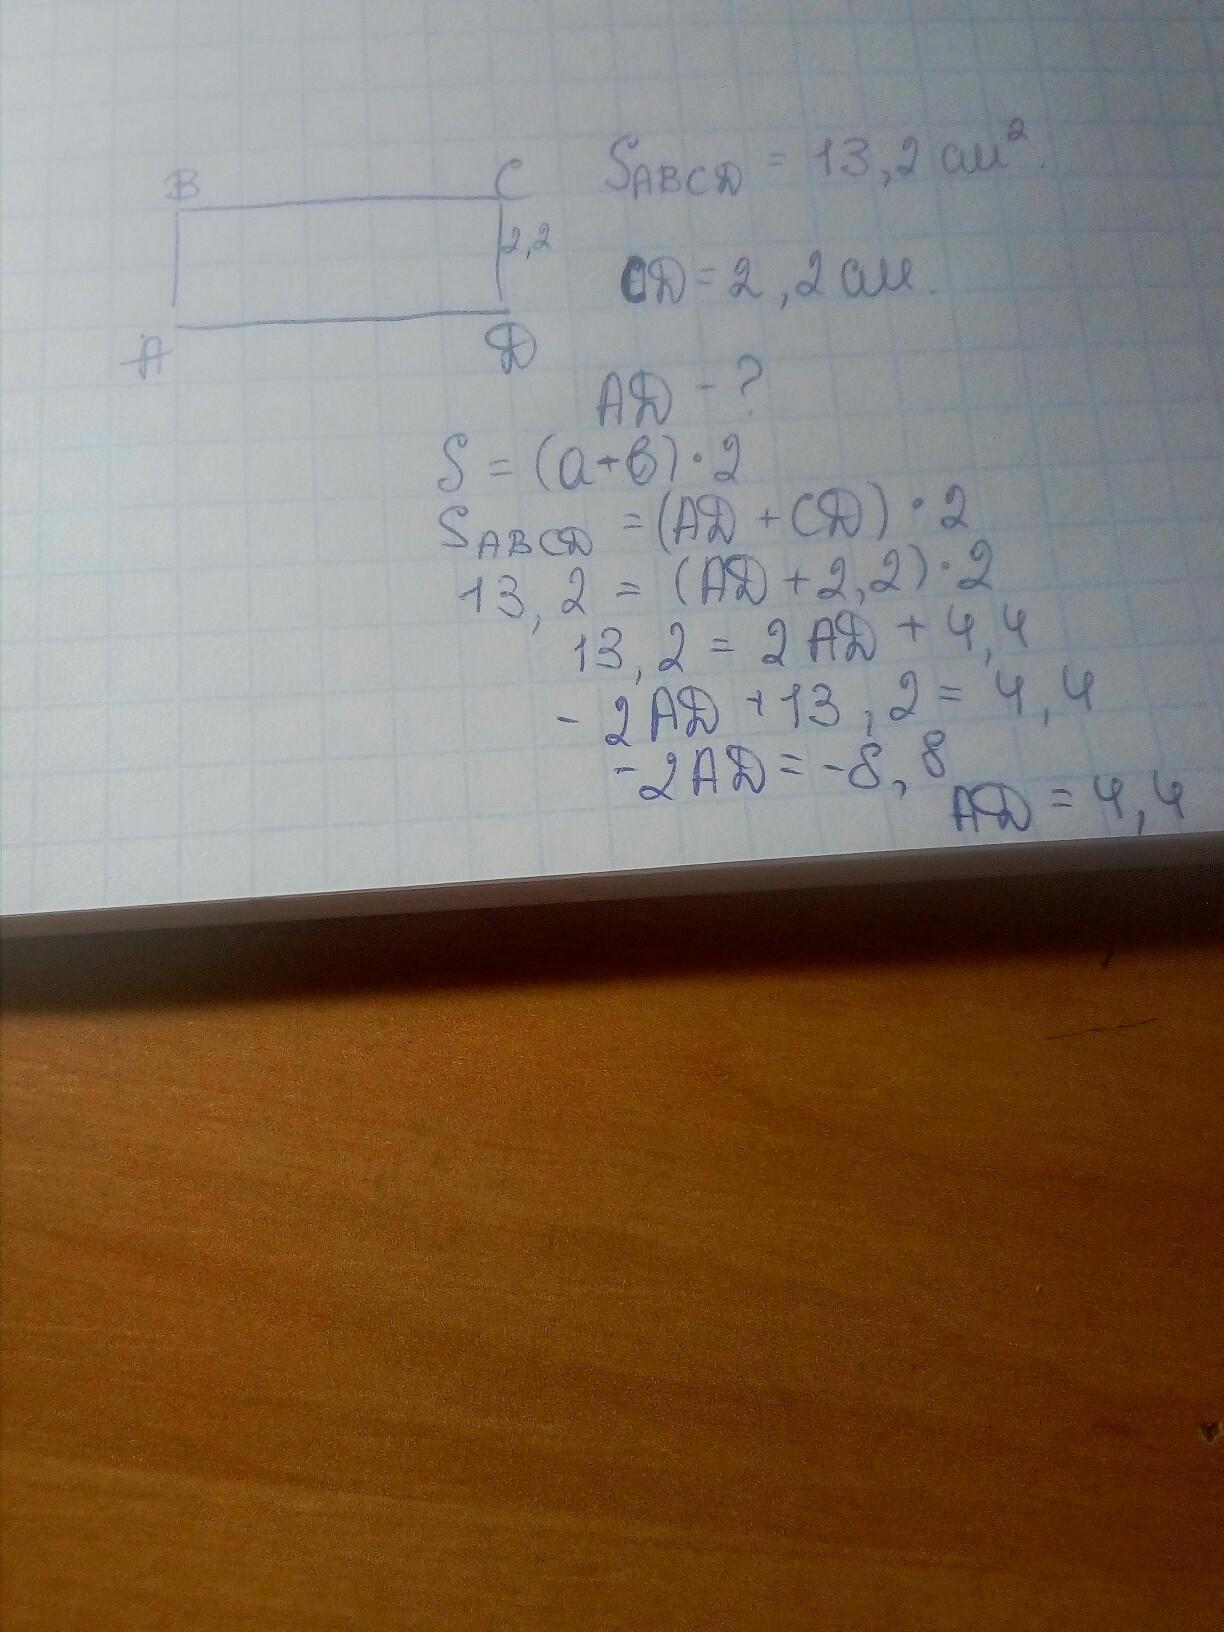 B C S_ABCD = 13,2 см².
2,2
CD = 2,2 см.
A D
AD - ?
S = (a+b)·2
S_ABCD = (AD + CD)·2
13,2 = (AD + 2,2)·2
13,2 = 2AD + 4,4
-2AD + 13,2 = 4,4
-2AD = -8,8
AD = 4,4